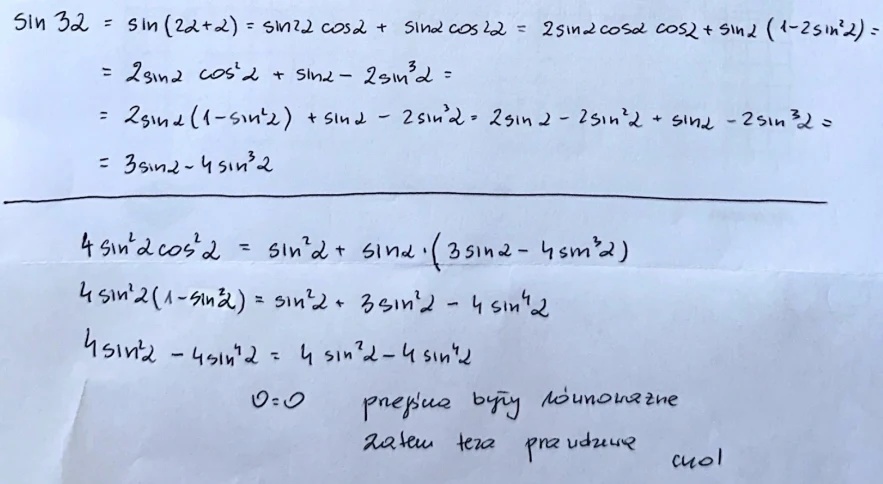 sin 3α = sin(2α+α) = sin2α cosα + sinα cos2α = 2sinα cosα cosα + sinα (1-2sin²α) =
= 2sinα cos²α + sinα - 2sin³α =
= 2sinα (1-sin²α) + sinα - 2sin³α = 2sinα - 2sin²α + sinα - 2sin³α =
= 3sinα - 4sin³α
4sin²α cos²α = sin²α + sinα · (3sinα - 4sin³α)
4sin²α (1-sin²α) = sin²α + 3sin²α - 4sin⁴α
4sin²α - 4sin⁴α = 4sin²α - 4sin⁴α
0=0 przejścia były równoważne
zatem teza prawdziwa
cnd